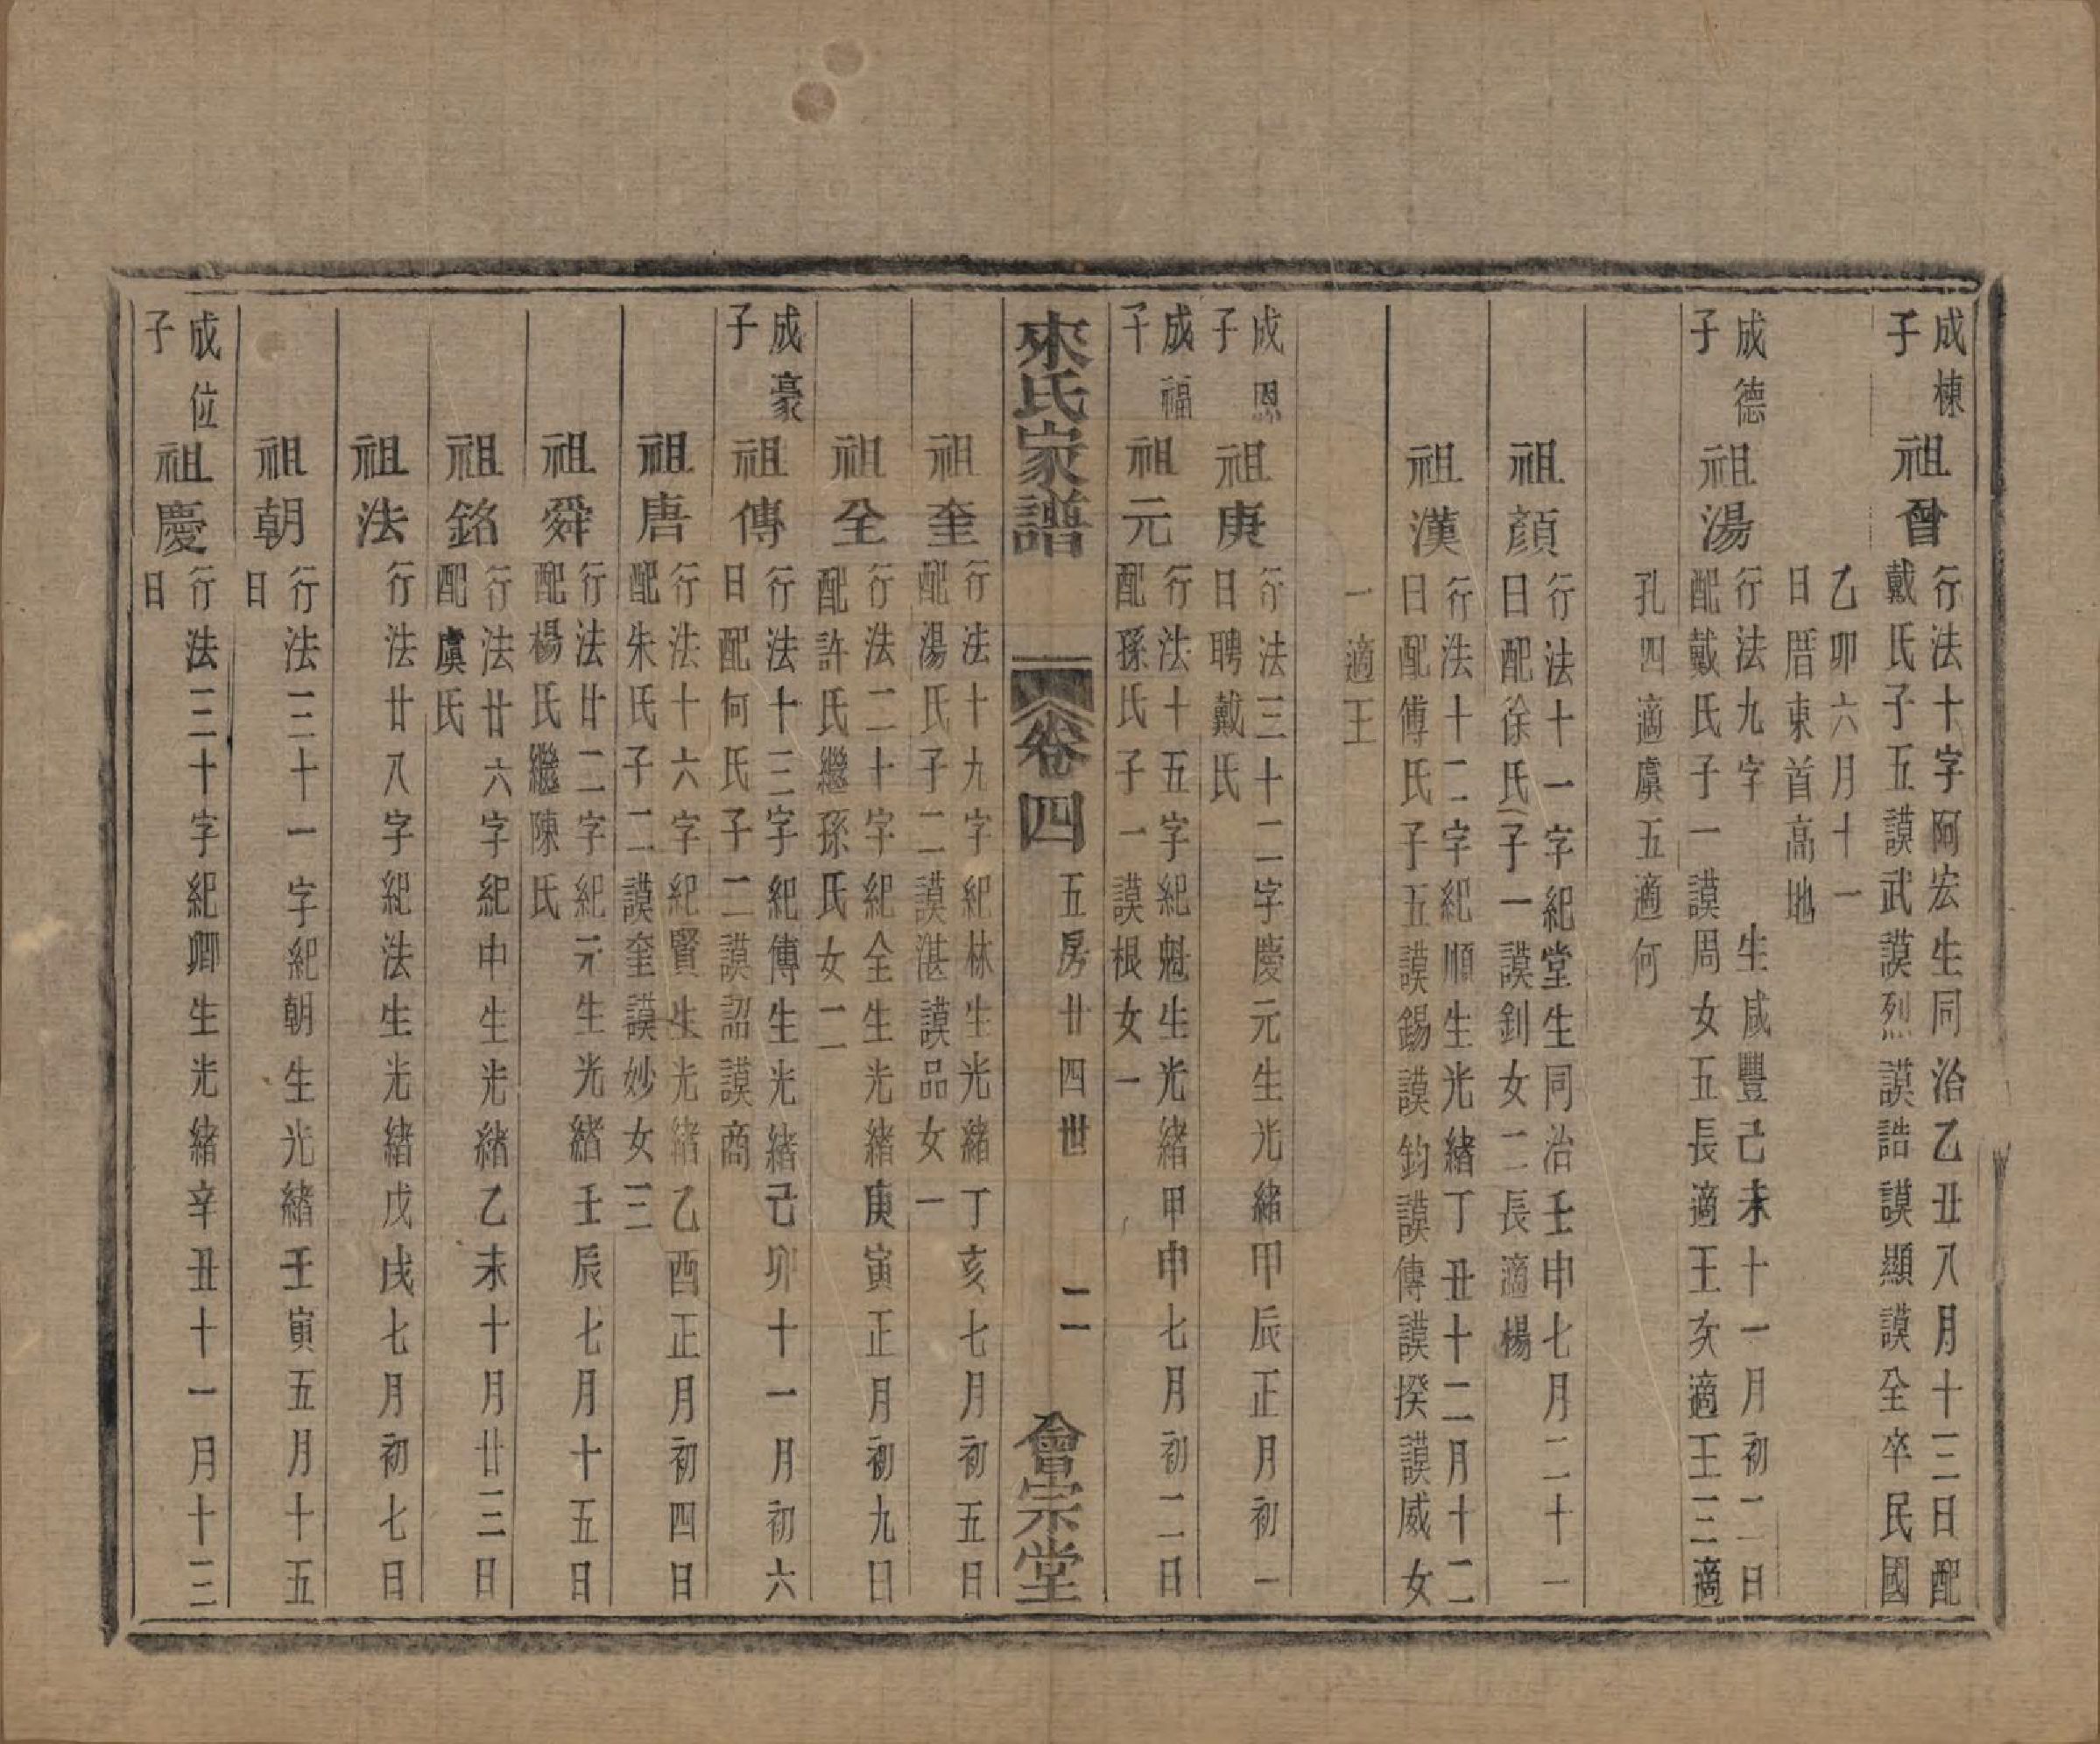 成棟
子
祖曾
行法十字阿宏生同治乙丑八月十三日配
戴氏子五謨武謨烈謨誥謨顯謨全卒民國
乙卯六月十一
日厝東首高地
成德
子
祖湯
行法九字 生咸豐己未十一月初二日
配戴氏子一謨周女五長適王次適王三適
孔四適虞五適何
祖顏
行法十一字紀堂生同治壬申七月二十一
日配徐氏子一謨釗女二長適楊
祖漢
行法十二字紀順生光緒丁丑十二月十二
日配傅氏子五謨錫謨鈞謨傳謨揆謨威女
一適王
成恩
子
祖庚
行法三十二字慶元生光緒甲辰正月初一
日聘戴氏
成福
子
祖元
行法十五字紀魁生光緒甲申七月初二日
配孫氏子一謨根女一
來氏家譜 卷四 五房廿四世 二 會宗堂
祖奎
行法十九字紀林生光緒丁亥七月初五日
配湯氏子二謨湛謨品女一
祖全
行法二十字紀全生光緒庚寅正月初九日
配許氏繼孫氏女二
成豪
子
祖傳
行法十三字紀傳生光緒己卯十一月初六
日配何氏子二謨詔謨商
祖唐
行法十六字紀賢生光緒乙酉正月初四日
配朱氏子二謨奎謨妙女三
祖舜
行法廿二字紀元生光緒壬辰七月十五日
配楊氏繼陳氏
祖銘
行法廿六字紀中生光緒乙未十月廿三日
配虞氏
祖法
行法廿八字紀法生光緒戊戌七月初七日
祖朝
行法三十一字紀朝生光緒壬寅五月十五
日
成位
子
祖慶
行法三十字紀卿生光緒辛丑十一月十三
日